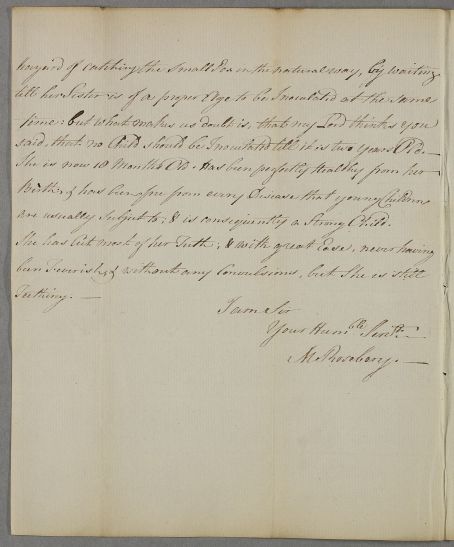 hazard of catching the Small Pox in the natural way, by waiting
till her Sister is of a proper Age to be Inoculated at the same
time: but what makes us doubt is, that my Lord thinks you
said, that no Child should be Inoculated till it is two years Old. —
She is now 18 Months Old. Has been perfectly Healthy from her
Birth, & has been free from every Disease that young Childrens
are usually Subject to; & is consequently a Strong Child.
She has cut most of her Teeth; & with great Ease, never having
been Feverish, & without any Convulsions, but She is still
Teething. —
I am Sir
Your Humble Servt. —
M Rosebery. —